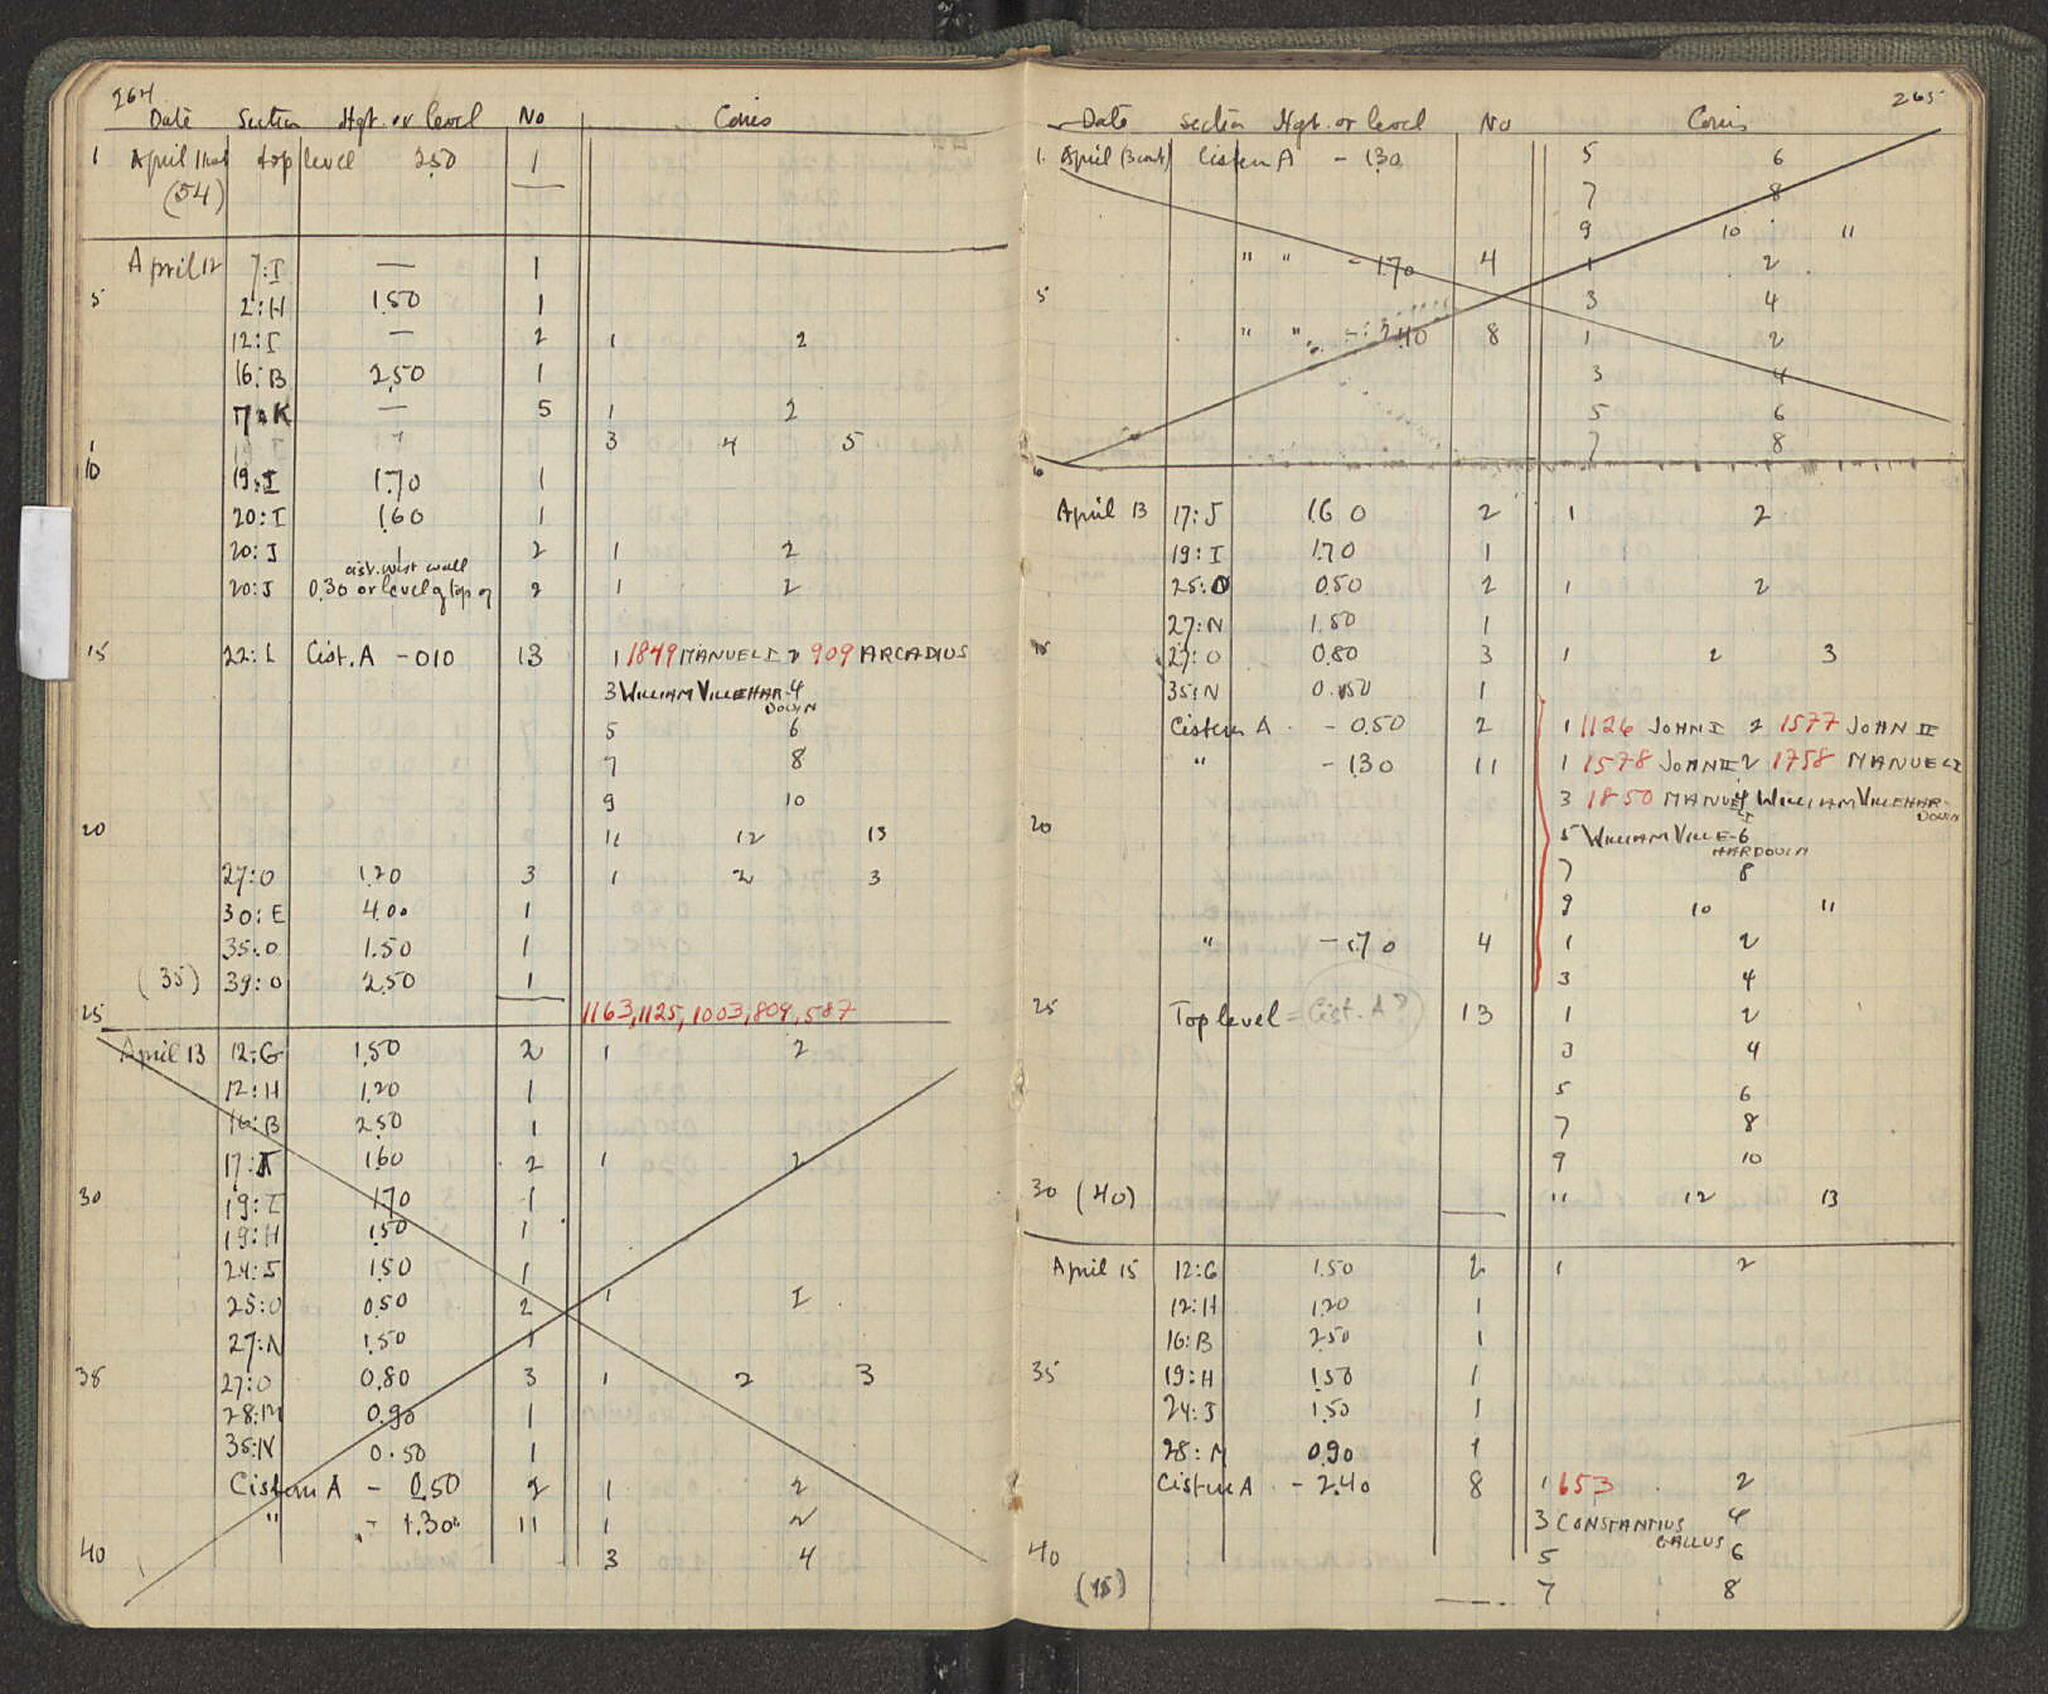 264
Date Section Hgt. or level No Coins
1 April 11 cont top level 2.50 1
(54)
April 12 7:I — 1
5 2:H 1.50 1
12:I — 2 1 2
16:B 2.50 1
17:K — 5 1 2
3 4 5
10 19:I 1.70 1
20:I 1.60 1
20:J 2 1 2
cist. west wall
20:J 0.30 or level of top of 2 1 2
15 22:L Cist. A -0.10 13 1 1849 MANUEL I 2 909 ARCADIUS
3 WILLIAM VILLEHAR- 4
DOUIN
5 6
7 8
9 10
20 11 12 13
27:O 1.20 3 1 2 3
30:E 4.00 1
35:O 1.50 1
(35) 39:O 2.50 1
25 1163, 1125, 1003, 809, 587
April 13 12:G 1.50 2 1 2
12:H 1.20 1
16:B 2.50 1
17:J 1.60 2 1 2
30 19:I 1.70 1
19:H 1.50 1
24:J 1.50 1
25:O 0.50 2 1 I
27:N 1.50 1
38 27:O 0.80 3 1 2 3
28:M 0.90 1
35:N 0.50 1
Cistern A - 0.50 2 1 2
" - 1.30 11 1 2
40 3 4
265
Date Section Hgt. or level No Coins
1. April 13 cont) Cistern A - 1.30 5 6
7 8
9 10 11
" " - 1.70 4 1 2
5 3 4
" " - 2.40 8 1 2
3 4
5 6
7 8
April 13 17:J 1.60 2 1 2
19:I 1.70 1
25:O 0.50 2 1 2
27:N 1.50 1
15 27:O 0.80 3 1 2 3
35:N 0.50 1
Cistern A - 0.50 2 1 1126 JOHN I 2 1577 JOHN II
" - 1.30 11 1 1578 JOHN II 2 1758 MANUEL I
3 1850 MANUEL I 4 WILLIAM VILLEHAR-
DOUIN
20 5 WILLIAM VILLE- 6
HARDOUIN
7 8
9 10 11
" - 1.70 4 1 2
3 4
25 Top level = Cist. A? 13 1 2
3 4
5 6
7 8
9 10
30 (40) 11 12 13
April 15 12:G 1.50 2 1 2
12:H 1.20 1
16:B 2.50 1
35 19:H 1.50 1
24:J 1.50 1
28:M 0.90 1
Cistern A - 2.40 8 1 653 2
3 CONSTANTIUS 4
GALLUS
40 5 6
(15) 7 8